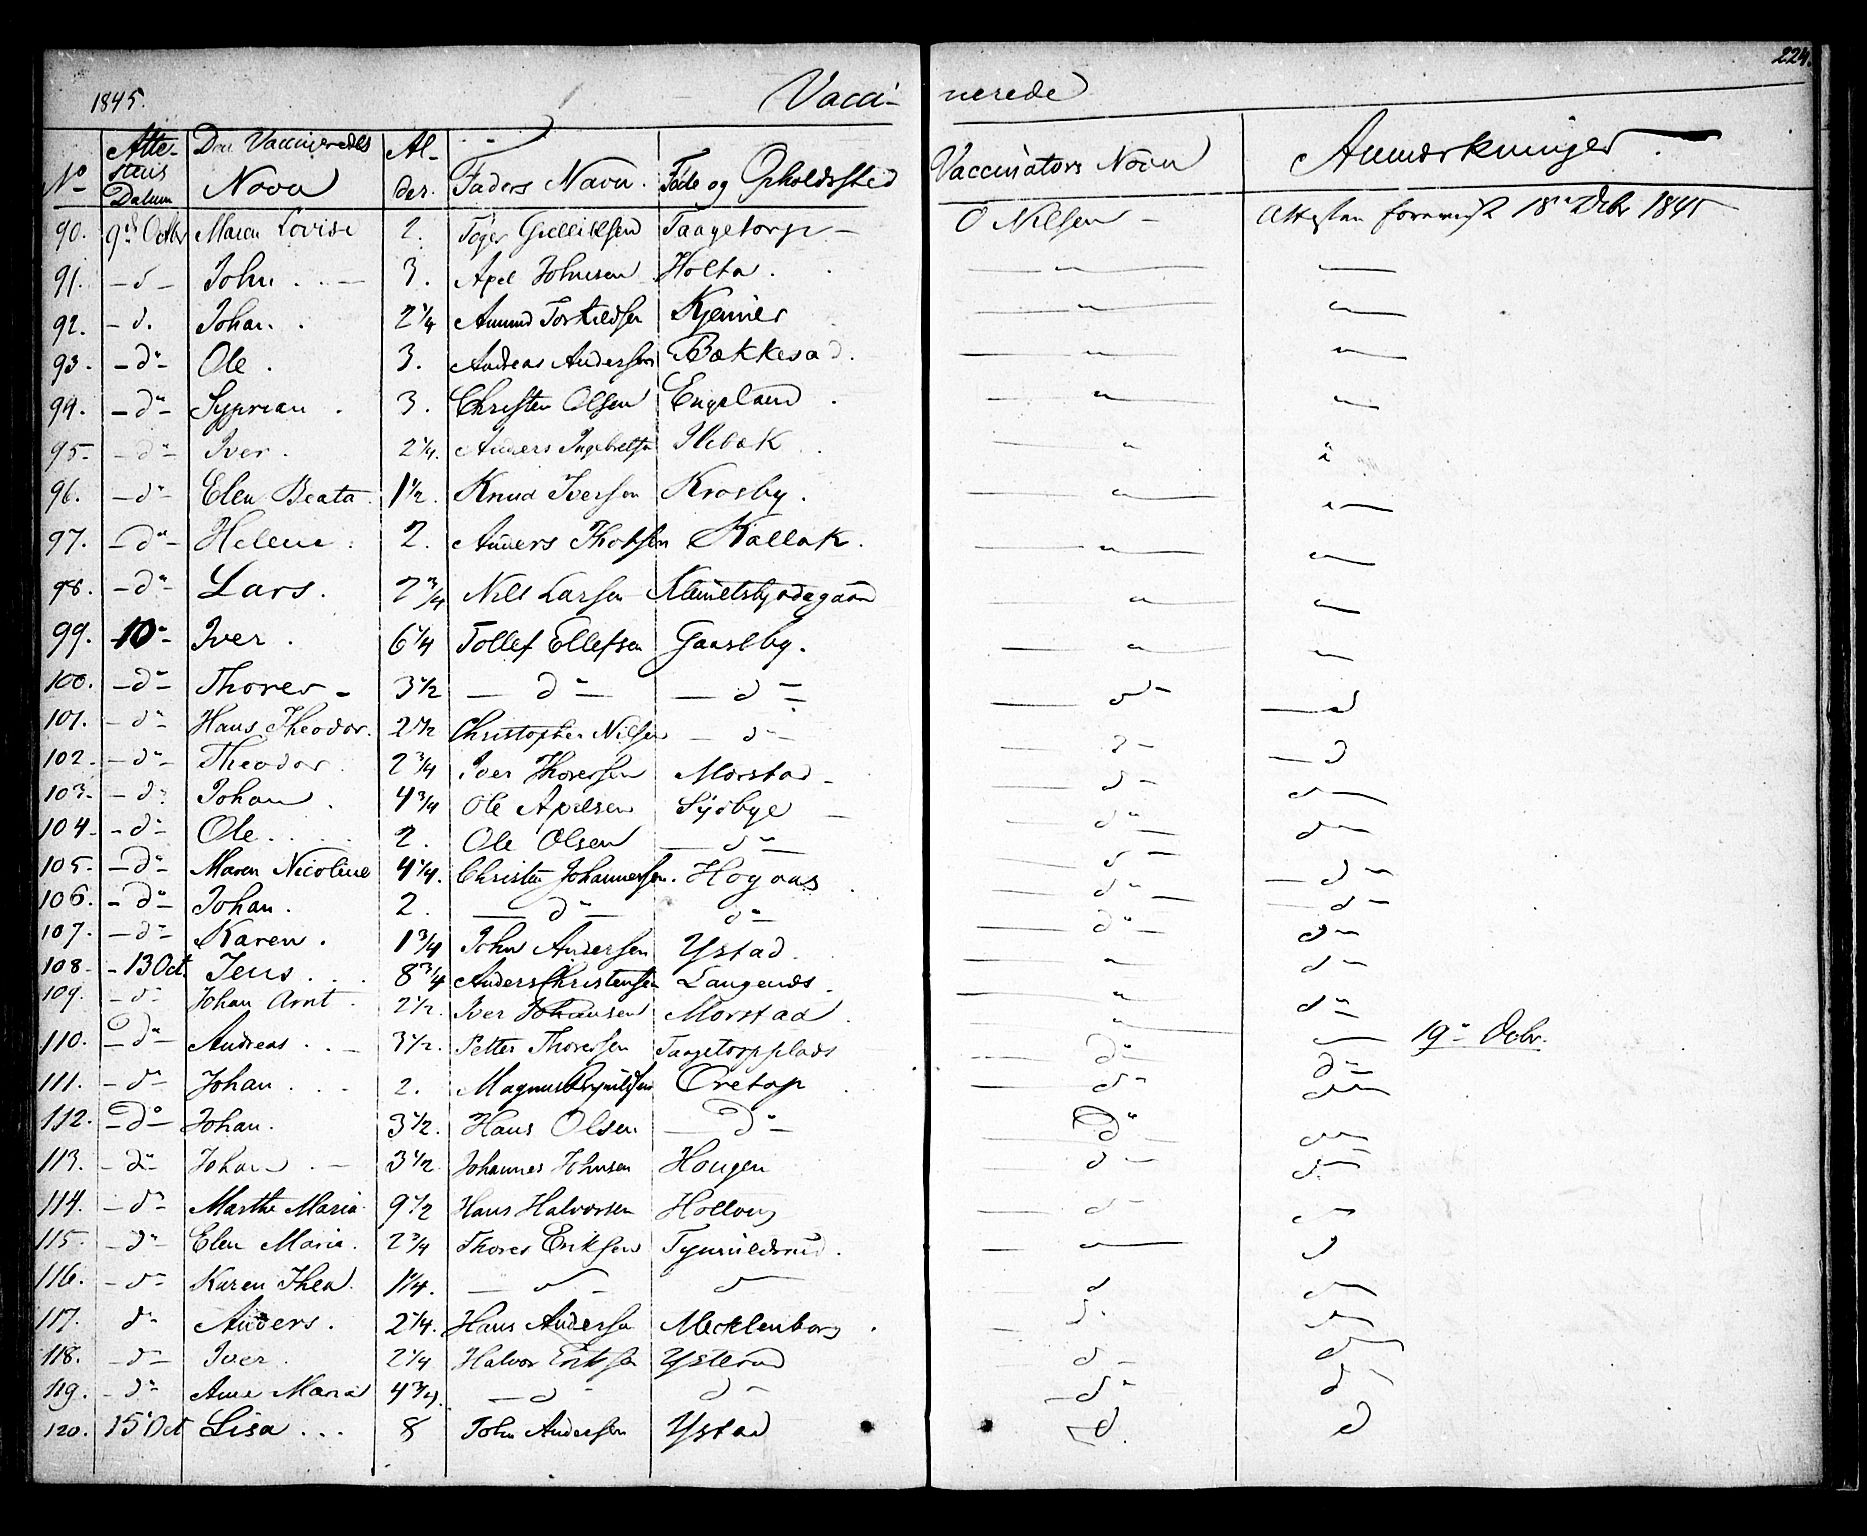 224.
1845. Vacci- nerede
No Atte-stens Datum Den Vaccineredes Navn Al-der. Faders Navn. Føde og Opholdssted Vaccinators Navn Anmærkninger.
90. 9de Octbr Maren Lovise 2. Tøger Gulliksen Taagetorp - O Nilsen - Attesten foreviist 18de Decbr 1845
91. - d - John 3. Axel Johnsen Holta. " "
92. - d. Johan. 2 1/4 Amund Torkildsen Kjenner " "
93. - do - Ole. 3. Andreas Andersen Bækkesad. " "
94. - do - Syprian. 3. Christen Olsen Engeland. " "
95 - - do - Iver. 2 1/4. Anders Ingebretsen Ilebæk " "
96. - do - Elen Beata. 1 1/2. Knud Iversen Krosby. " "
97. - do - Helene. 2. Anders Kallak. " "
98. - do - Lars. 2 3/4 Nils Larsen " "
99. 10 - Iver. 6 1/4 Tollef Ellefsen Gaaseby. " "
100. - do - Thorer - 3 1/2 - do - - do - do - d
101. - do - Hans Theodor. 2 1/2 Christopher Nilsen - do - do - - d
102. - do - Theodor. 2 3/4 Iver Thoresen Morstad - d - "
103. - do Johan. 4 3/4 Ole Axelsen Sydbye do - do -
104. - do - Ole. 2. Ole Olsen - do - d - do -
105. - do - Maren Nicoline 4 1/4. Christen Johannesen. Hogaas do - - do -
106. - do - Johan. 2. - do - do - do - - do -
107. - do - Karen. 1 3/4 John Andersen Ystad. " do -
108. - 13 Oct. Jens 8 3/4 Anders Christensen Langends. " do -
109. - do - Johan Arnt. 2 1/2. Iver Johansen Morstad. " do -
110. - do - Andreas. - 3 1/2. Petter Thoresen Taagetorpplads do - 19de Octbr.
111. - do - Johan. 2. Magnus Oretop do - do -
112. - do - Johan. 3 1/2. Hans Olsen - do - do - do -
113. - do - Johan. - 3 1/2 Johannes Johnsen Hougen d - do -
114. - do - Marthe Maria 9 1/2 Hans Halvorsen d - "
115. - do - Elen Maria. 2 3/4 Thores Eriksen " d
116. - do - Karen Thea. 1 1/4. - do - do d do -
117. do Anders. 2 1/4. Hans Andersen Mecklenborg. d. do -
118. - do - Iver. 2 1/4 Halvor Eriksen Ysterud d - do -
119. - do - Anne Maria 4 3/4. - do do - - do - do -
120. 15 Oct Lisa 8 John Andersen Ystad - d. d